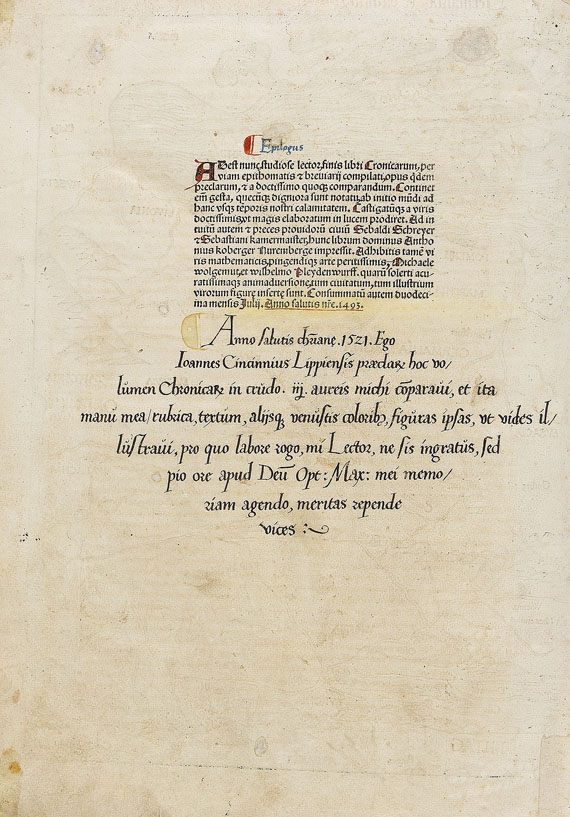 Epilogus
ADest nunc studiose lector finis libri Cronicarum per
viam epithomatis ⁊ breuiarij compilati opus q̄dem
preclarum, ⁊ a doctissimo quoq; comparandum. Continet
em̄ gesta, quecūq; digniora sunt notatu ab initio mūdi ad
hanc vsq; tēporis nostri calamitatem. Castigatūq; a viris
doctissimis vt magis elaboratum in lucem prodiret. Ad in
tuitū autem ⁊ preces prouidorū ciuiū Sebaldi Schreyer
⁊ Sebastiani kamermaister, hunc librum dominus Antho
nius koberger Nuremberge impressit. Adhibitis tamē vi
ris mathematicis pingendiq; arte peritissimis, Michaele
wolgemut et wilhelmo Pleydenwurff. quarū solerti acu-
ratissimaq; animaduersione tum ciuitatum, tum illustrium
virorum figure inserte sunt. Consummatū autem duodeci
ma mensis Julij. Anno salutis nr̄e. 1493.
Anno salutis chr̄iane. 1521. Ego
Ioannes Cincinnius Lippiensis præclarꝝ hoc vo/
lumen Chronicaꝝ in crudo. iij. aureis michi cōparaui, et ita
manū mea/rubrica, textum, alijsq; venustis coloribꝫ, figuras ipsas, vt vides il/
lustraui, pro quo labore rogo, mi Lector, ne sis ingratus, sed
pio ore apud Deū Opt: Max: mei memo/
riam agendo, meritas repende
vices :~